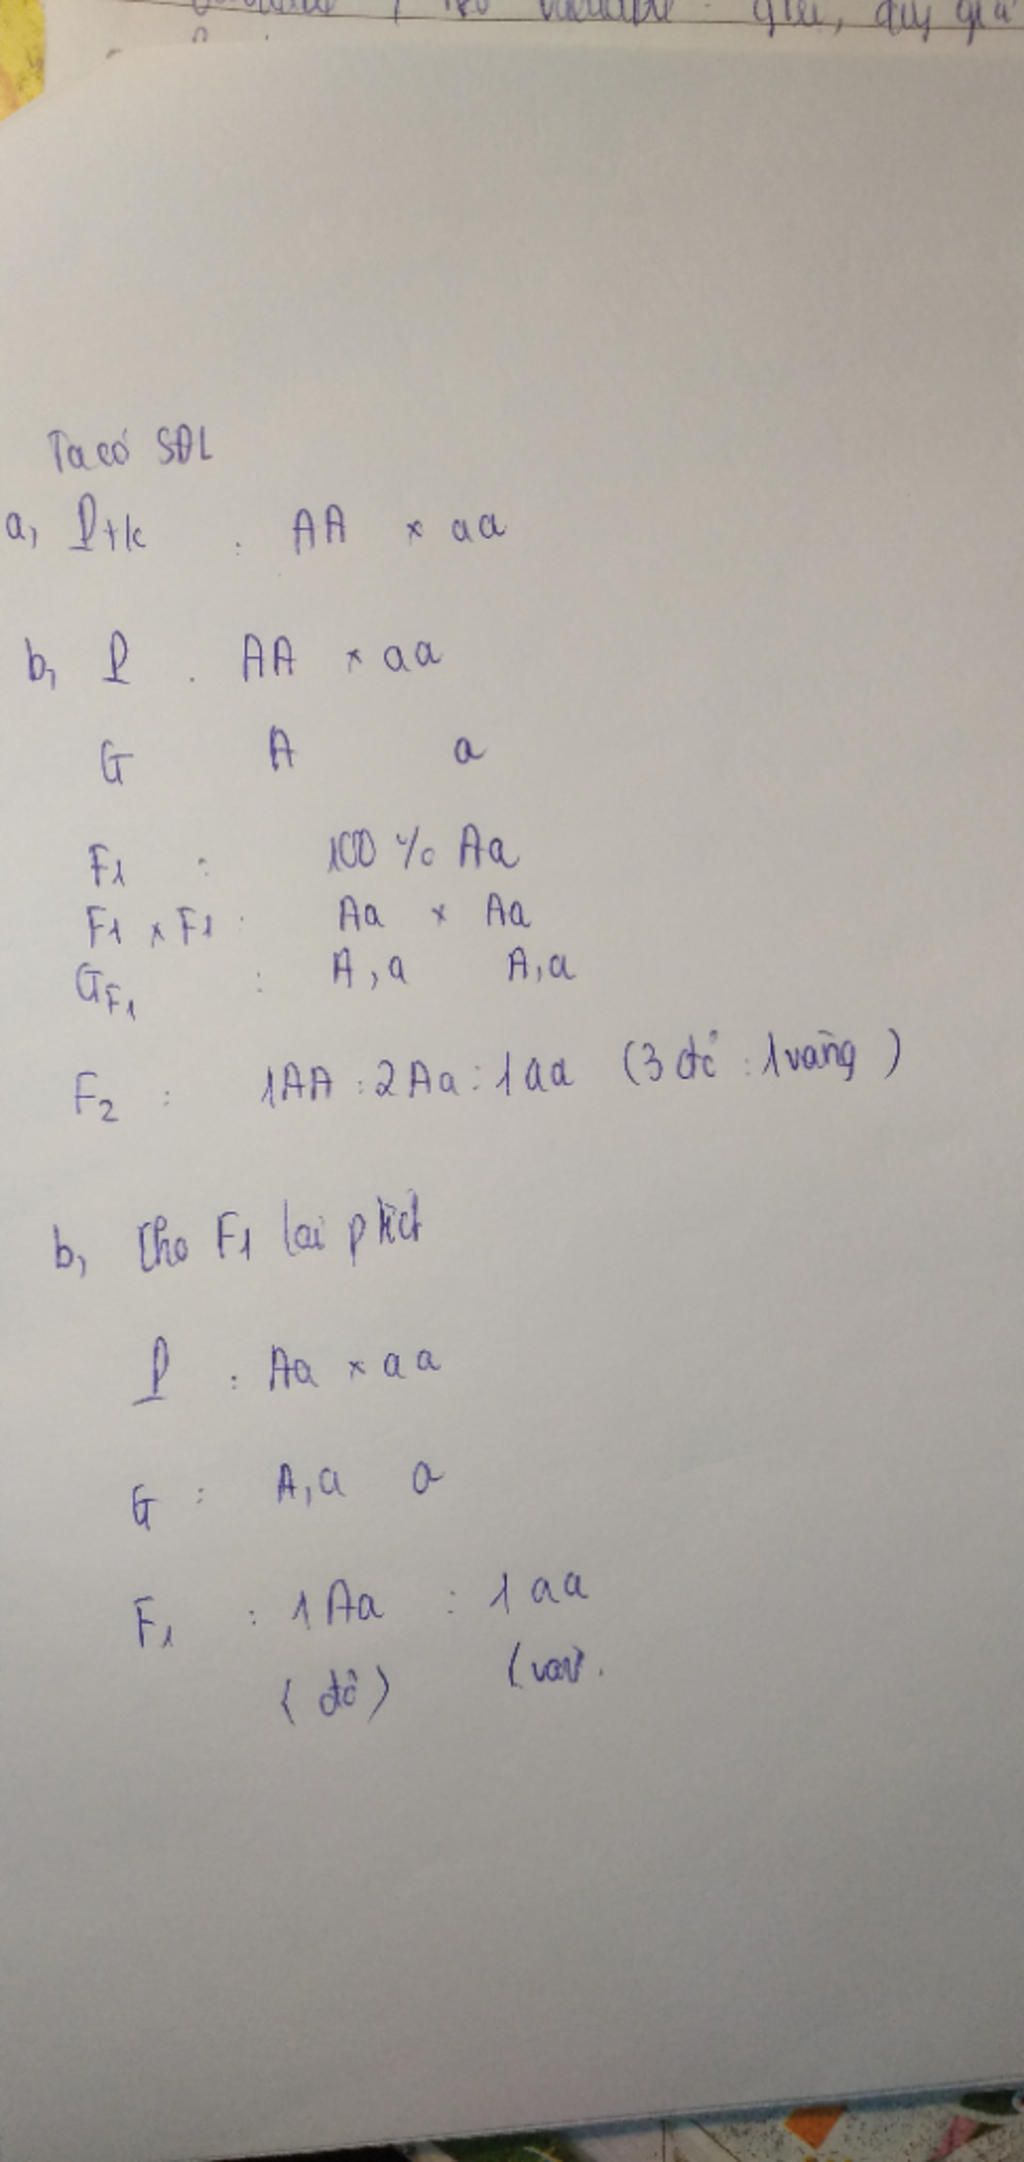 variable giá, duy giá
Ta có SĐL
a, Ptk : AA × aa
b, P . AA × aa
G A a
F1 : 100 % Aa
F1 × F1 : Aa × Aa
GF1 : A, a A, a
F2 : 1AA : 2Aa : 1aa (3 đỏ : 1 vàng)
b, Cho F1 lai ptích
P : Aa × aa
G : A, a a
F1 : 1 Aa : 1 aa
(đỏ) (